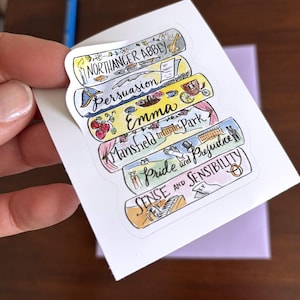 NORTHANGER ABBEY
Persuasion
Emma
Mansfield Park
Pride and Prejudice
SENSE AND SENSIBILITY